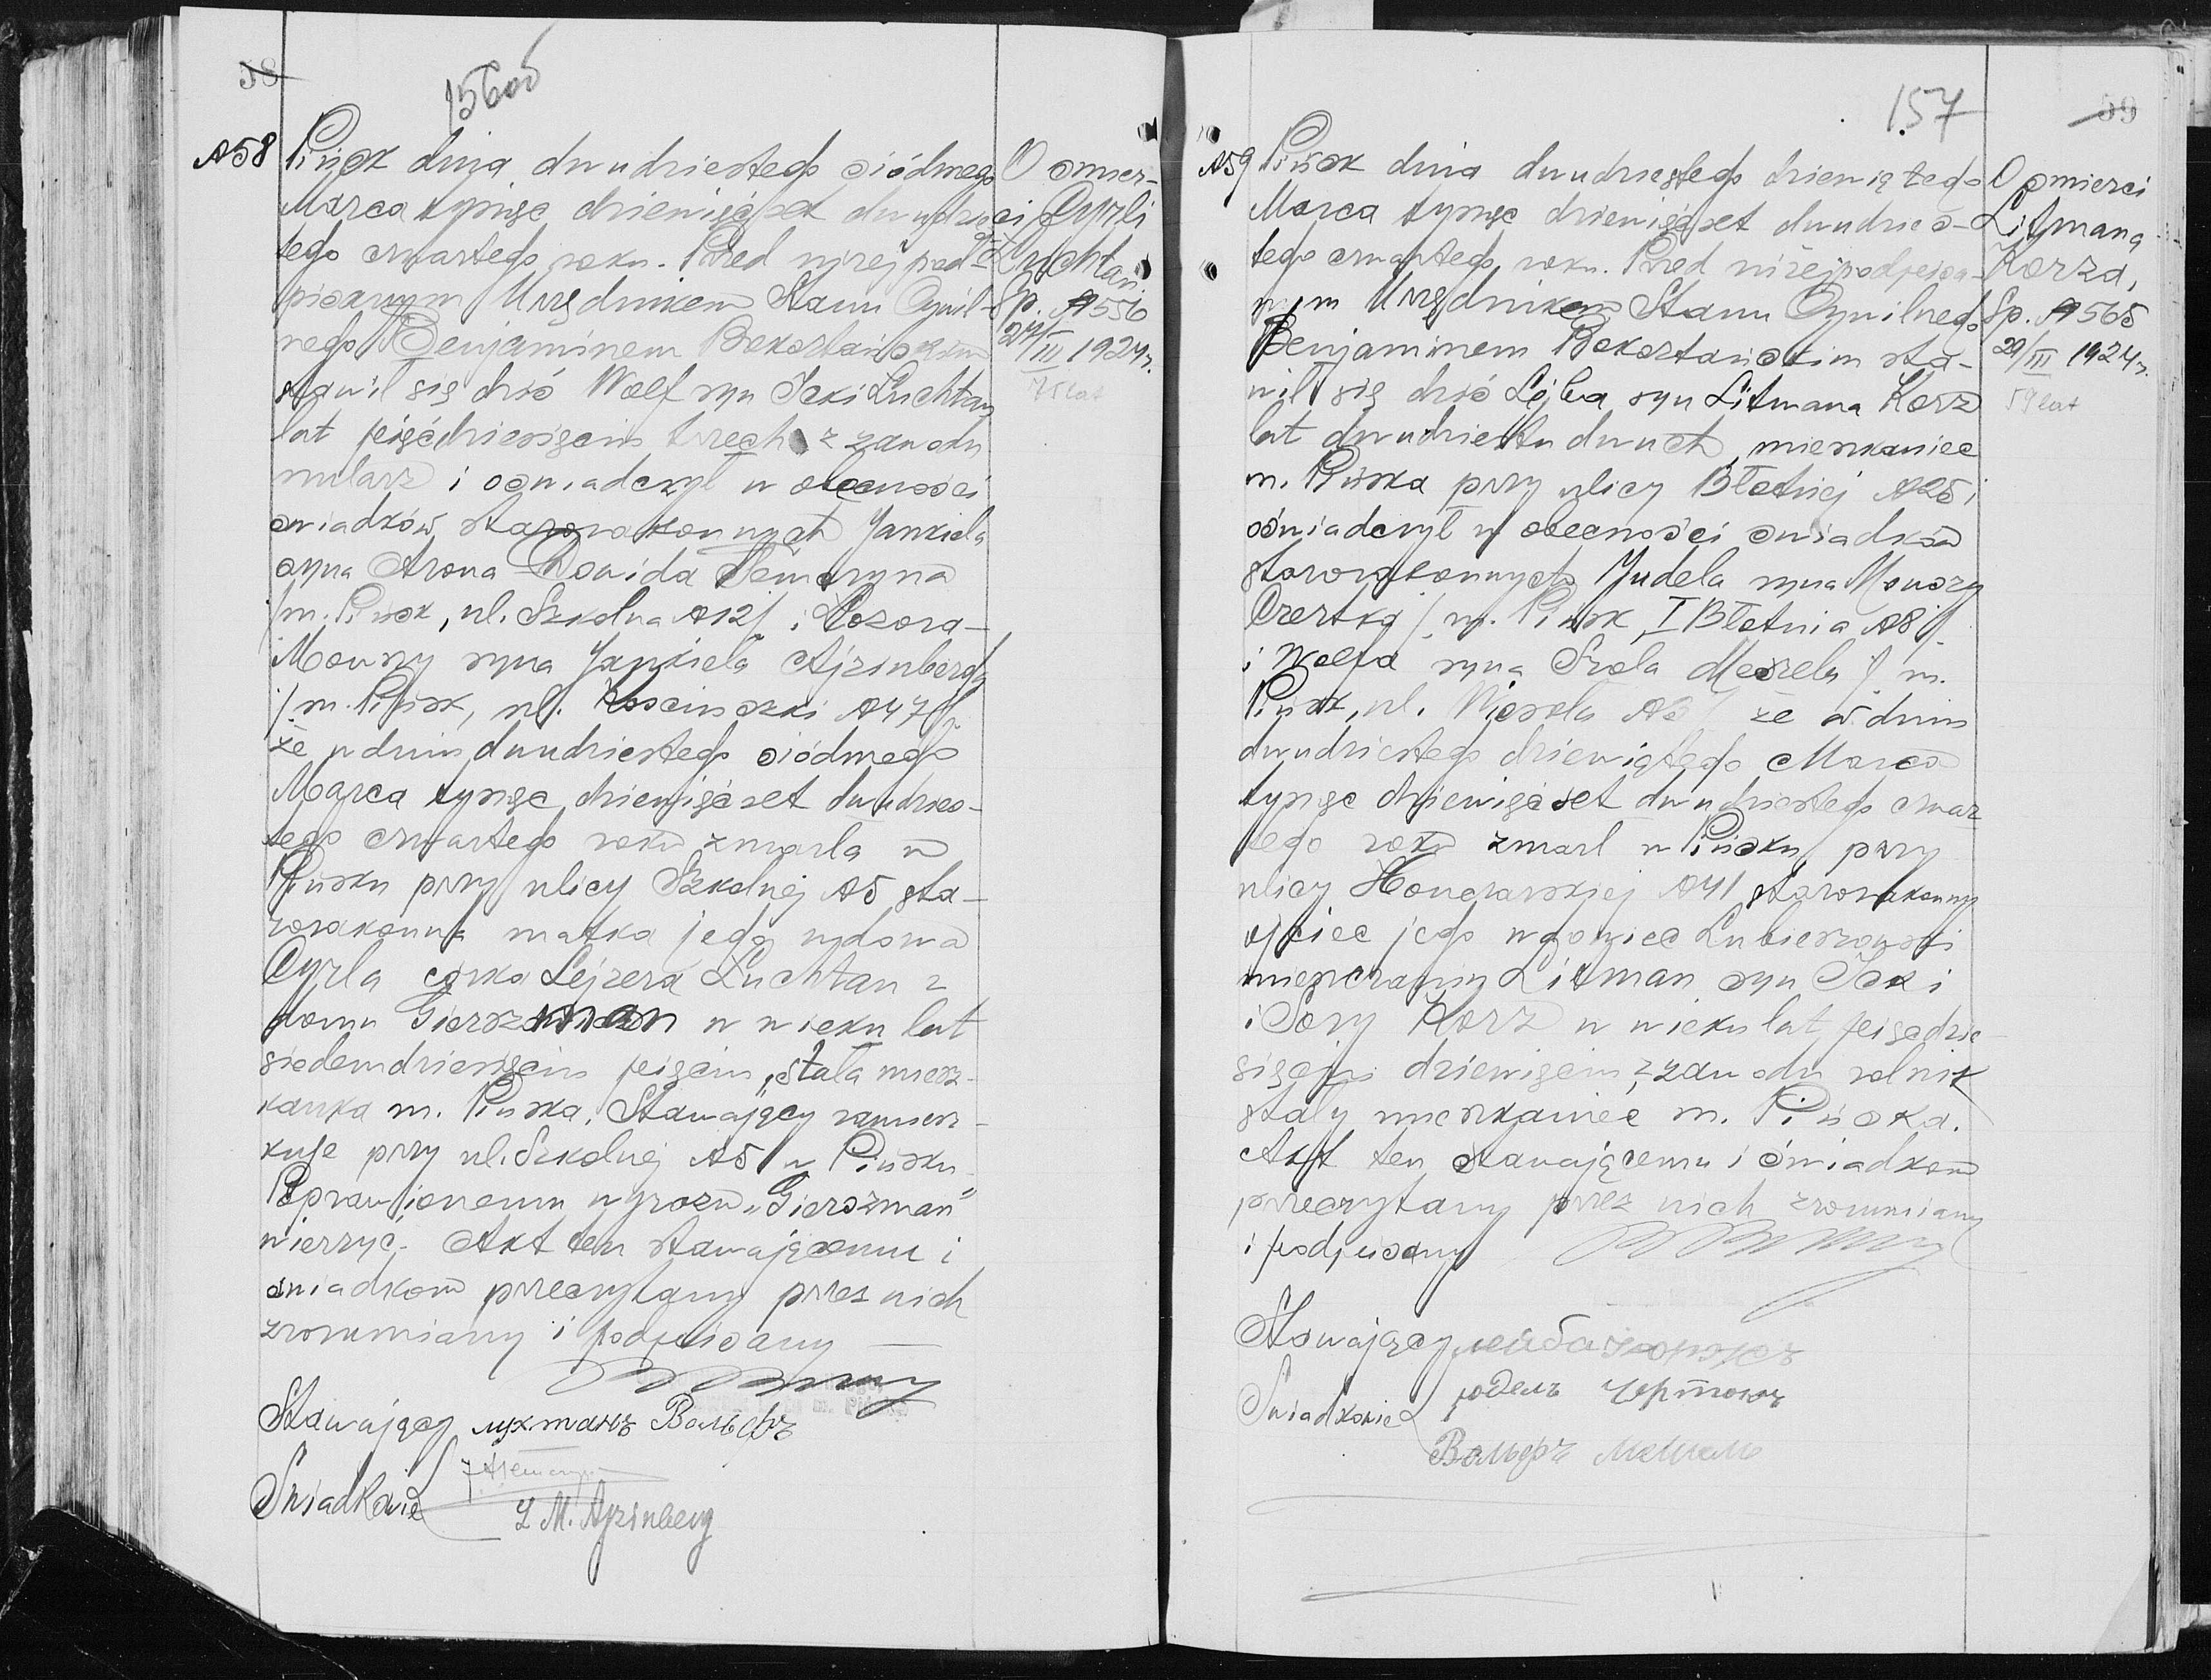 58
156об
№58
Pińsk dnia dwudziestego siódmego
Marca tysiąc dziewięćset dwudzies-
tego czwartego roku. Przed niżej pod-
pisanym Urzędnikiem Stanu Cywil-
nego Benjaminem Bokształskim
stawił się dziś Wolf syn Icki Luchtan
lat pięćdziesięciu trzech z zawodu
mularz i oświadczył w obecności
świadków starozakonnych Jankiela
syna Arona Dowida Semaryna
/m. Pińsk, ul. Szkolna №12/ i Łozora-
Mowszy syna Jankiela Ajzinberga
/m. Pińsk, ul. Kościuszki №47/
że w dniu dwudziestego siódmego
Marca tysiąc dziewięćset dwudzies-
tego czwartego roku zmarła w
Pińsku przy ulicy Szkolnej №5 sta-
rozakonna matka jego wdowa
Cyrla córka Lejzera Luchtan z
domu Gierszman w wieku lat
siedemdziesięciu pięciu, stała miesz-
kanka m. Pińska. Stawający zamiesz-
kuje przy ul. Szkolnej №5 w Pińsku
Poprawionemu wyrazu „Gierszman"
wierzyć. Akt ten stawającemu i
świadkom przeczytany przez nich
zrozumiany i podpisany
Stawający лухтанъ Вольфъ
Świadkowie
Ł M. Ajzinberg
O śmier-
ci Cyrli
Luchtan
Sp. №556
27/III 1924 r.
75 lat
157
59
№59
Pińsk dnia dwudziestego dziewiątego
Marca tysiąc dziewięćset dwudzies-
tego czwartego roku. Przed niżej podpisa-
nym Urzędnikiem Stanu Cywilnego
Benjaminem Bokształskim sta-
wił się dziś Lejba syn Litmana Korż
lat dwudziestu dwuch, mieszkaniec
m. Pińska przy ulicy Błotniej №25 i
oświadczył w obecności świadków
starozakonnych Judela syna Mowszy
Czertka / m. Pińsk, I Błotnia №8/
i Wolfa syna Srola Meszela / m.
Pińsk, ul. Wiosła № że w dniu
dwudziestego dziewiątego Marca
tysiąc dziewięćset dwudziestego czwar
tego roku zmarł w Pińsku przy
ulicy Honczarskiej №41 starozakonny
ojciec jego wdowiec Lubieszowski
mieszczanin Litman syn Icki
i Sory Korż w wieku lat pięćdzie-
sięciu dziewięciu z zawodu rolnik
stały mieszkaniec m. Pińska.
Akt ten stawającemu i świadkom
przeczytany przez nich zrozumiany
i podpisany
Stawający лейба коржъ
Świadkowie юдель Чертокъ
Вольфъ Мешель
O śmierci
Litmana
Korża,
Sp. №565
29/III 1924 r.
59 lat